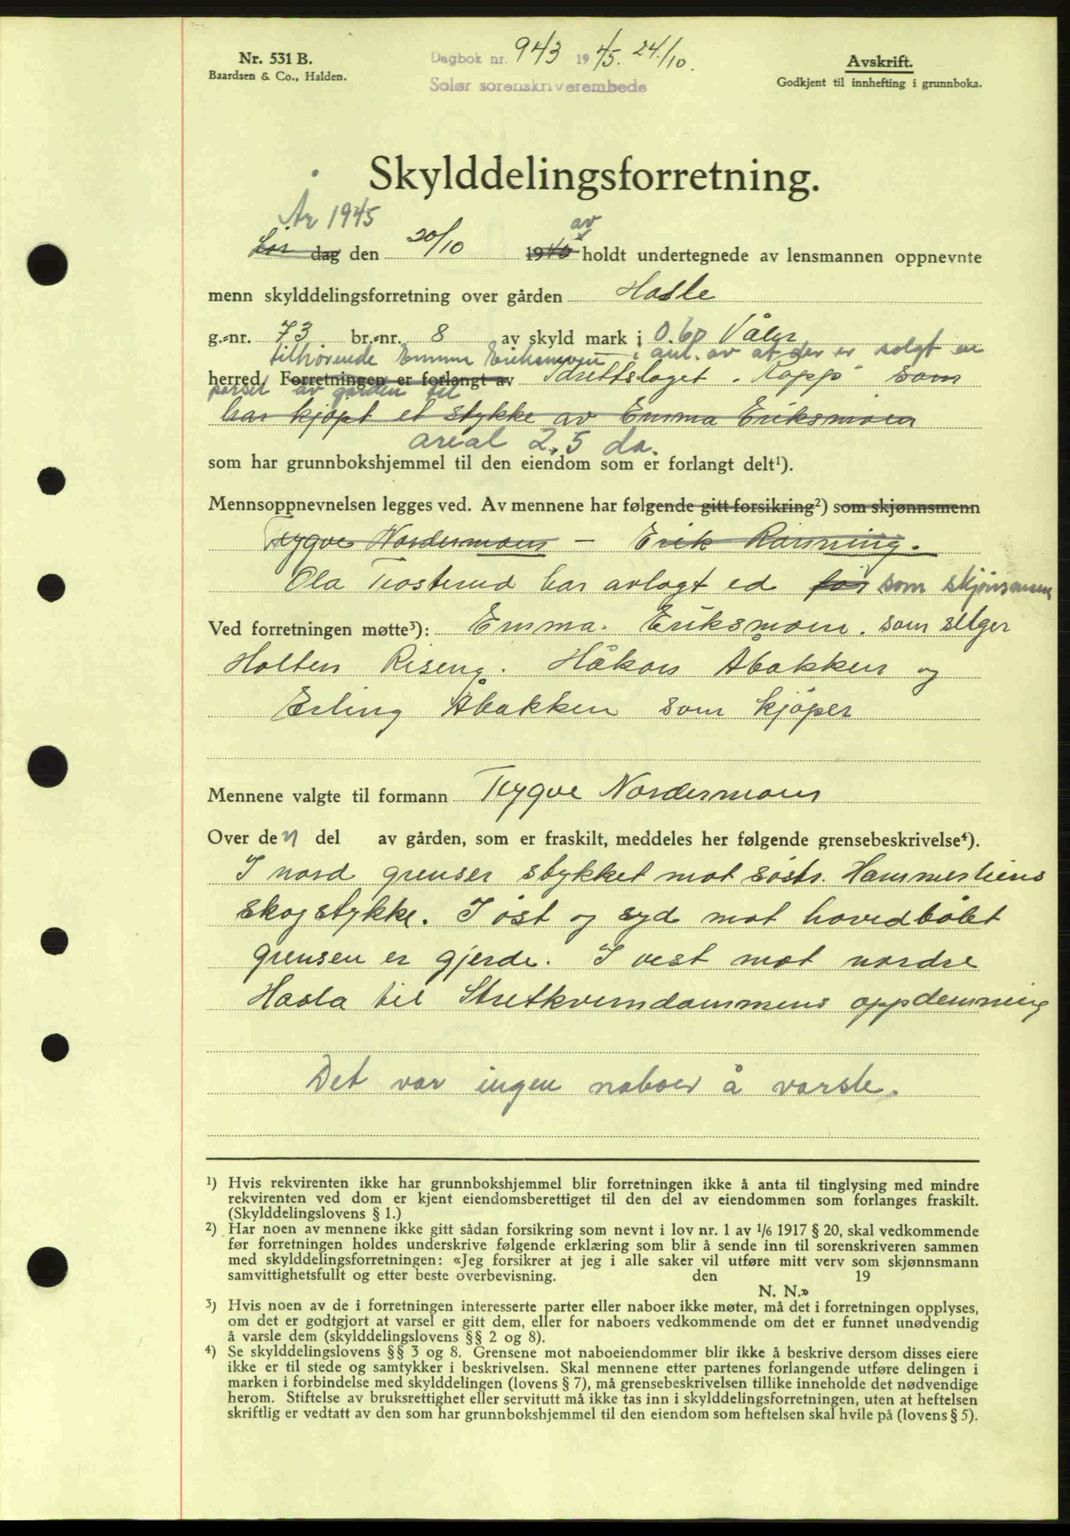 Nr. 531 B.
Baardsen & Co., Halden.
Dagbok nr. 943 1945. 24/10.
Solør sorenskriverembede
Avskrift.
Godkjent til innhefting i grunnboka.
Skylddelingsforretning.
År 1945
av
Lør dag den 20/10 1940 holdt undertegnede av lensmannen oppnevnte
menn skylddelingsforretning over gården Hasle
g.-nr. 73 br.-nr. 8 av skyld mark i 0.60 Våler
tilhørende Emma Eriksmoen i anl. av at der er solgt en
herred. Forretningen er forlangt av Idrettslaget "Kapp" som
parsel av gården til
har kjøpt et stykke av Emma Eriksmoen
areal 2,5 da.
som har grunnbokshjemmel til den eiendom som er forlangt delt¹).
Mennsoppnevnelsen legges ved. Av mennene har følgende gitt forsikring²) som skjønnsmenn
Trygve Nordermoen — Erik Rønning.
Ola Trosterud har avlagt ed før som skjønsmenn
Ved forretningen møtte³): Emma. Eriksmoen. som selger
Holten Riseng. Håkon Åbakken og
Erling Åbakken som kjøper
Mennene valgte til formann Trygve Nordermoen
Over den del av gården, som er fraskilt, meddeles her følgende grensebeskrivelse⁴).
I nord grenser stykket mot søstr. Hammerliens
skogstykke. I øst og syd mot hovedbølet
grensen er gjerde. I vest mot nordre
Hasla til oppdemning
Det var ingen naboer å varsle.
¹) Hvis rekvirenten ikke har grunnbokshjemmel blir forretningen ikke å anta til tinglysing med mindre
rekvirenten ved dom er kjent eiendomsberettiget til den del av eiendommen som forlanges fraskilt.
(Skylddelingslovens § 1.)
²) Har noen av mennene ikke gitt sådan forsikring som nevnt i lov nr. 1 av 1/6 1917 § 20, skal vedkommende
før forretningen holdes underskrive følgende erklæring som blir å sende inn til sorenskriveren sammen
med skylddelingsforretningen: «Jeg forsikrer at jeg i alle saker vil utføre mitt verv som skjønnsmann
samvittighetsfullt og etter beste overbevisning. den 19
N. N.»
³) Hvis noen av de i forretningen interesserte parter eller naboer ikke møter, må det i forretningen opplyses,
om det er godtgjort at varsel er gitt dem, eller for naboers vedkommende om det er funnet unødvendig
å varsle dem (skylddelingslovens §§ 2 og 8).
⁴) Se skylddelingslovens §§ 3 og 8. Grensene mot naboeiendommer blir ikke å beskrive dersom disses eiere
ikke er til stede og samtykker i beskrivelsen. Skal mennene etter partenes forlangende utføre delingen i
marken i forbindelse med skylddelingen (lovens § 7), må grensebeskrivelsen tillike inneholde det nødvendige
herom. Stiftelse av bruksrettighet eller servitutt må ikke tas inn i skylddelingsforretningen, uten at heftelsen
skriftlig er vedtatt av den som har grunnbokshjemmel til den eiendom som heftelsen skal hvile på (lovens § 5).